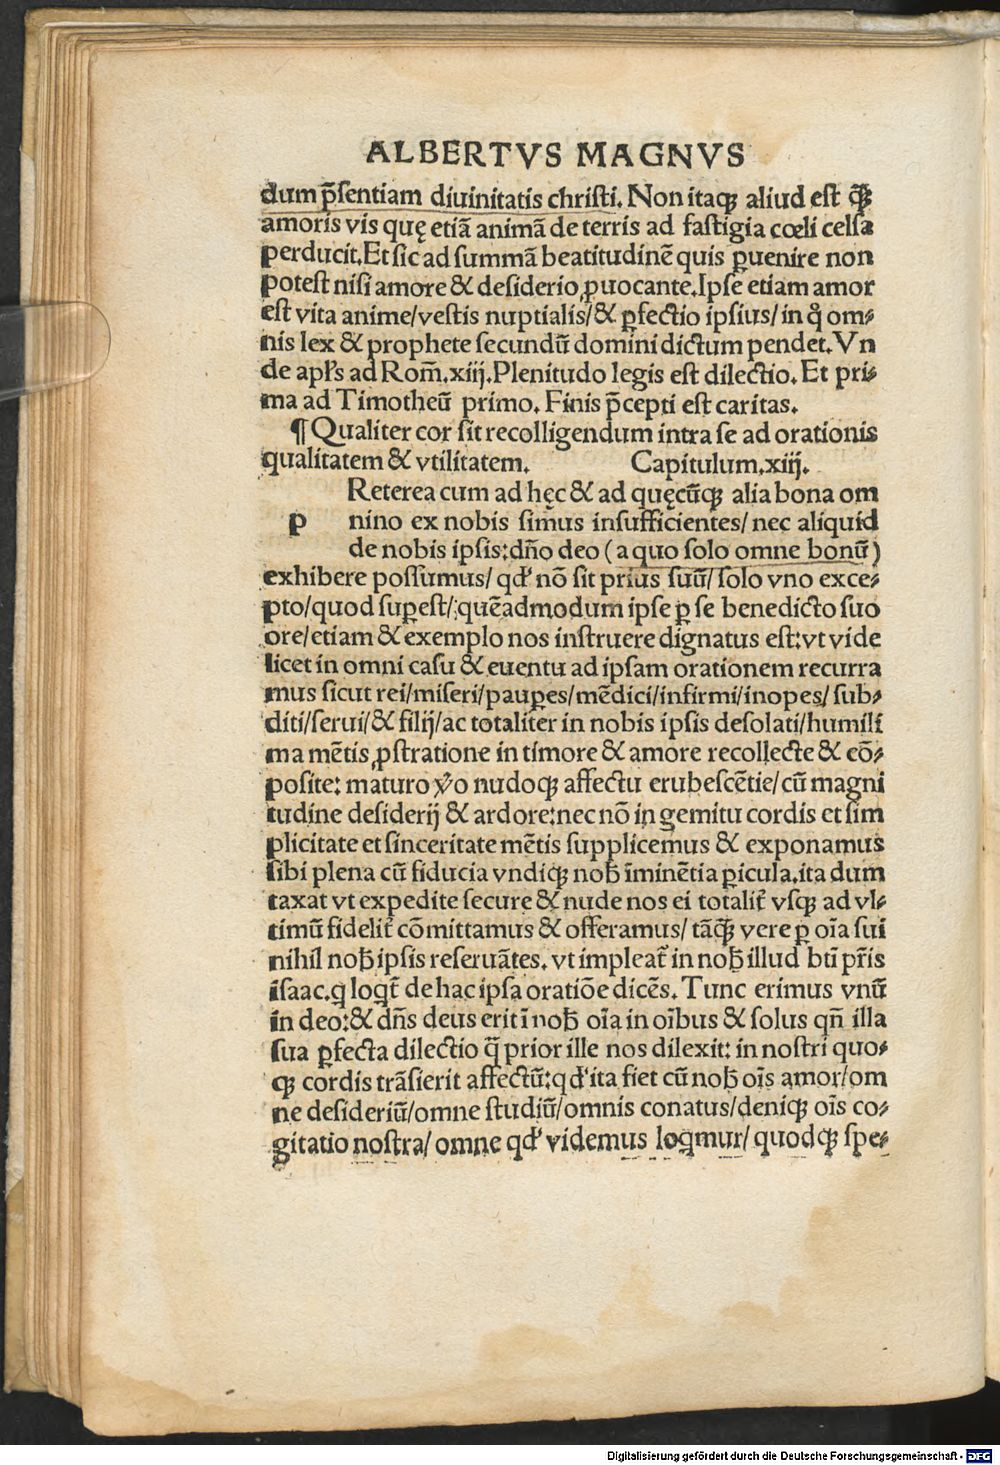 ALBERTVS MAGNVS
dum p̄sentiam diuinitatis christi. Non itaqꝫ aliud est q̄ꝫ
amoris vis quę etiā animā de terris ad fastigia cœli celsa
perducit. Et sic ad summā beatitudinē quis ꝑuenire non
potest nisi amore & desiderio ꝓuocante. Ipse etiam amor
est vita anime/vestis nuptialis/& ꝑfectio ipsius/in qͦ om⸗
nis lex & prophete secundū domini dictum pendet. Vn
de apl's ad Rom̄. xiij. Plenitudo legis est dilectio. Et pri⸗
ma ad Timotheū primo. Finis p̄cepti est caritas.
¶ Qualiter cor sit recolligendum intra se ad orationis
qualitatem & vtilitatem. Capitulum. xiij.
Reterea cum ad hęc & ad quęcūqꝫ alia bona om
p nino ex nobis simus insufficientes/ nec aliquid
de nobis ipsis: dn̄o deo ( a quo solo omne bonū )
exhibere possumus/ qd' nō sit prius suū/ solo vno exce⸗
pto/quod suꝑest/: quēadmodum ipse ꝑ se benedicto suo
ore/etiam & exemplo nos instruere dignatus est: vt vide
licet in omni casu & euentu ad ipsam orationem recurra
mus sicut rei/miseri/pauꝑes/mēdici/infirmi/inopes/ sub⸗
diti/serui/& filij/ac totaliter in nobis ipsis desolati/humili
ma mētis ꝓstratione in timore & amore recollecte & cō⸗
posite: maturo ꝟo nudoqꝫ affectu erubescētie/cū magni
tudine desiderij & ardore: nec nō in gemitu cordis et sim
plicitate et sinceritate mētis supplicemus & exponamus
sibi plena cū fiducia vndiqꝫ nob̄ īminētia ꝑicula. ita dum
taxat vt expedite secure & nude nos ei totalit̄ vsqꝫ ad vl⸗
timū fidelit̄ cōmittamus & offeramus/ tāq̄ꝫ vere ꝑ oīa sui
nihil nob̄ ipsis reseruātes. vt impleat̄ in nob̄ illud bti pr̄is
isaac. q loqt̄ de hac ipsa oratiōe dicēs. Tunc erimus vnū
in deo: & dn̄s deus erit ī nob̄ oīa in oībus & solus qn̄ illa
sua ꝑfecta dilectio q̄ prior ille nos dilexit: in nostri quo⸗
qꝫ cordis trāsierit affectū: qd' ita fiet cū nob̄ oīs amor/om
ne desideriū/omne studiū/omnis conatus/deniqꝫ oīs co⸗
gitatio nostra/ omne qd' videmus loqmur/ quodqꝫ spe⸗
Digitalisierung gefördert durch die Deutsche Forschungsgemeinschaft - DFG